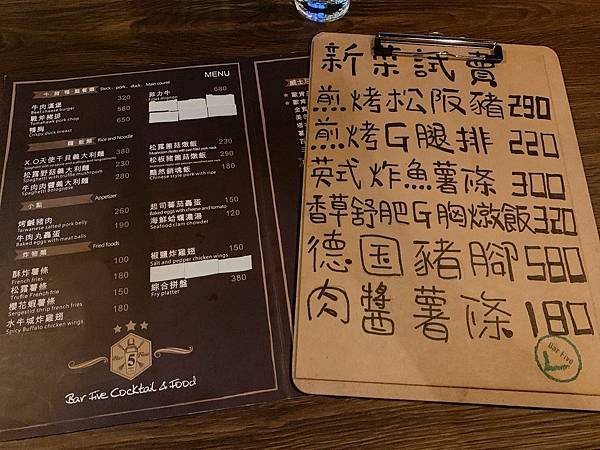 MENU
牛 豬 鴨 風餐類 Steck、pork、duck、Main course
牛肉漢堡 320
Beef cheese burger
戰斧豬排 650
Tomahawk pork chop
鴨胸
Crispy duck breast
菲力牛 680
Filet mignon
麵飯類 Rice and Noodle
X.O天使干貝義大利麵 380
松露野菇義大利麵 180
Spaghetti with truffle mushroom
牛肉肉醬義大利麵 180
Spaghetti Bolognese
松露菌菇燉飯 230
松板豬菌菇燉飯 290
黯然銷魂飯 180
Chinese style pork with rice
小點 Appetizer
烤鹹豬肉 260
Taiwanese salted pork belly
牛肉丸聶蛋 190
Baked eggs with meat balls
起司蕃茄聶蛋 150
Baked eggs with cheese and tomato
海鮮蛤蠣濃湯 120
Seafood clam chowder
炸物類 Fried foods
酥炸薯條 100
French fries
松露薯條 150
Truffle French fries
櫻花蝦薯條 180
Sergestid shrip french fries
水牛城炸雞翅 180
Spicy Buffalo chicken wings
椒鹽炸雞翅 150
Salt and pepper chicken wings
綜合拼盤 380
Fry platter
Bar 5 Five
Bar Five Cocktail & Food
新菜試賣
煎烤松阪豬 290
煎烤G腿排 220
英式炸魚薯條 300
香草舒肥G胸燉飯 320
德国豬腳 580
肉醬薯條 180
Bar Five